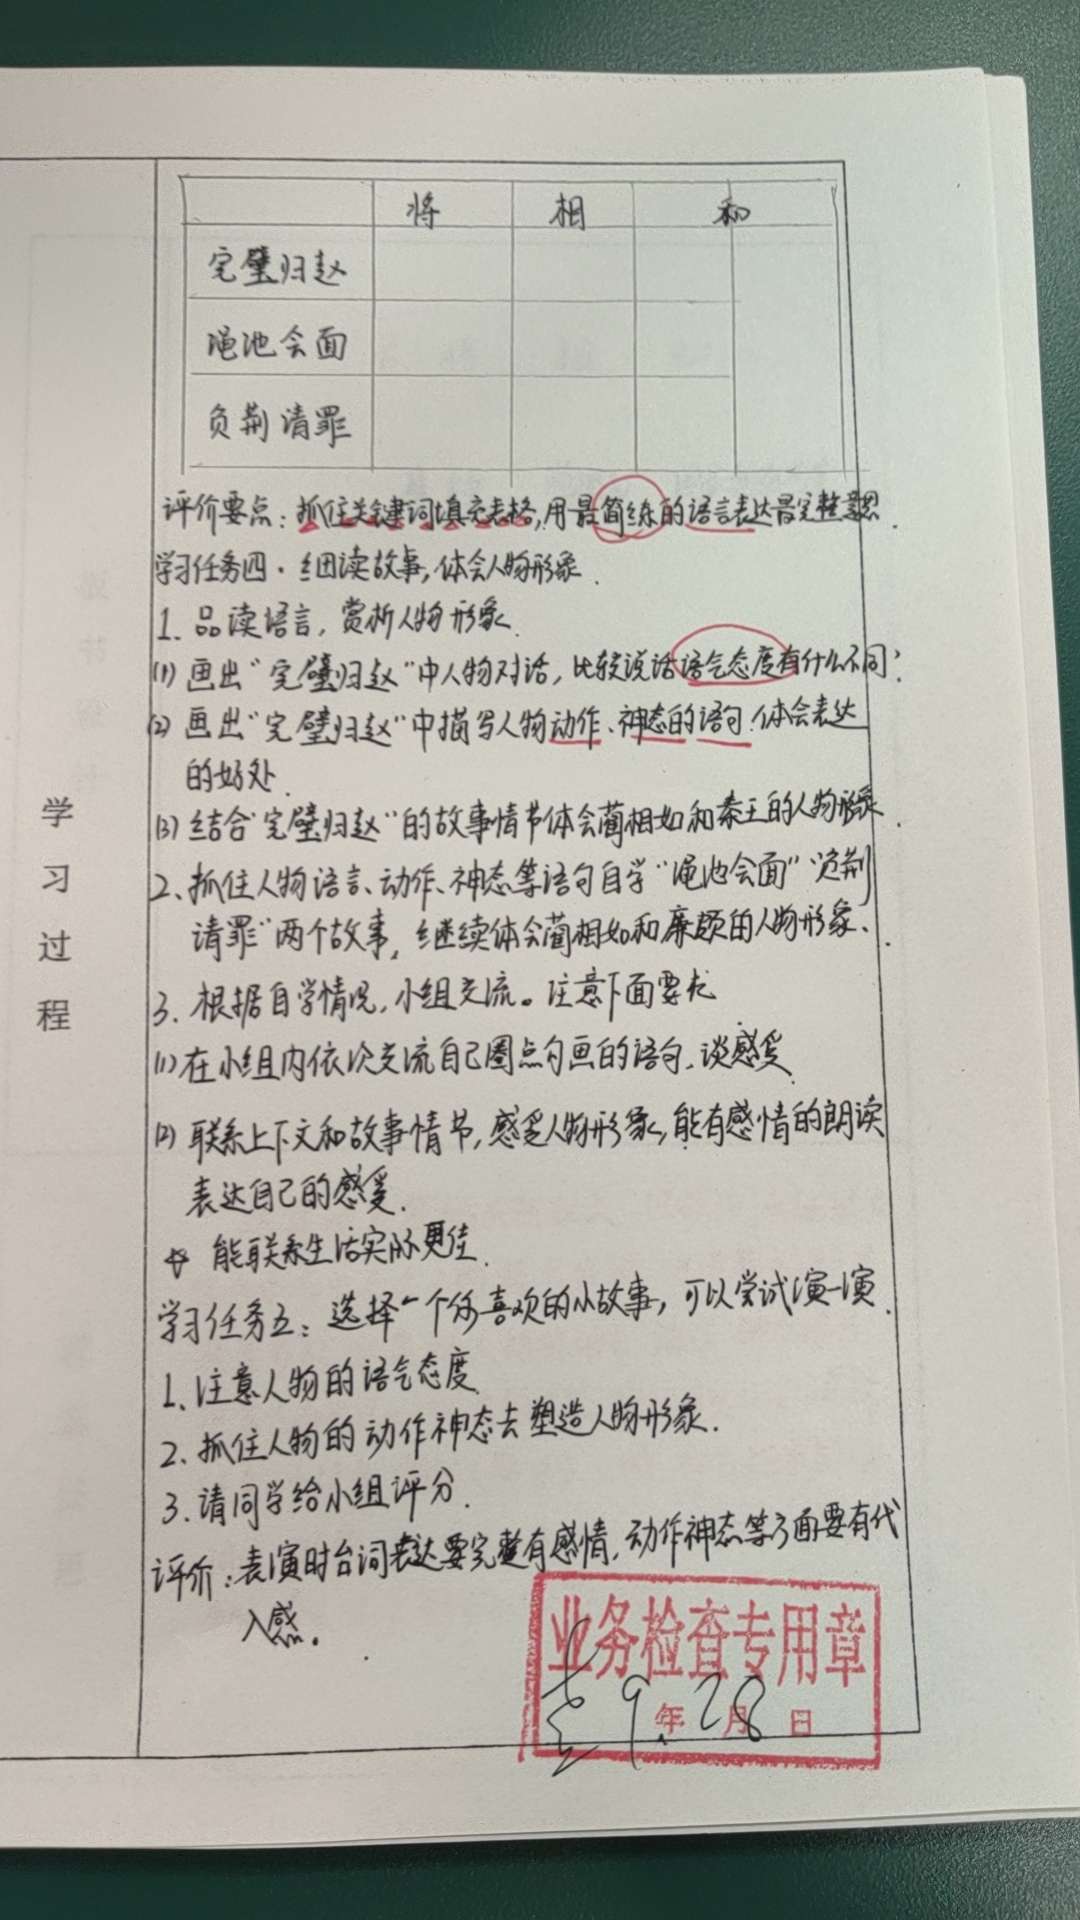 将 相 和
完璧归赵
渑池会面
负荆请罪
评价要点：抓住关键词填充表格，用最简练的语言表达最完整意思.
学习任务四．细读故事，体会人物形象.
1. 品读语言，赏析人物形象.
(1) 画出“完璧归赵”中人物对话，比较说话语气态度有什么不同?
(2) 画出“完璧归赵”中描写人物动作、神态的语句.体会表达
的好处.
(3) 结合“完璧归赵”的故事情节体会蔺相如和秦王的人物形象.
2、抓住人物语言、动作、神态等语句自学“渑池会面”“负荆
请罪”两个故事，继续体会蔺相如和廉颇的人物形象、
3. 根据自学情况，小组交流。注意下面要求
(1) 在小组内依次交流自己圈点勾画的语句.谈感受.
(2) 联系上下文和故事情节，感受人物形象，能有感情的朗读
表达自己的感受.
☆ 能联系生活实际更佳.
学习任务五：选择一个你喜欢的小故事，可以尝试演一演.
1、注意人物的语气态度
2. 抓住人物的动作神态去塑造人物形象.
3. 请同学给小组评分.
评价：表演时台词表达要完整有感情，动作神态等方面要有代
入感.
学习过程
业务检查专用章
9年.28月 日